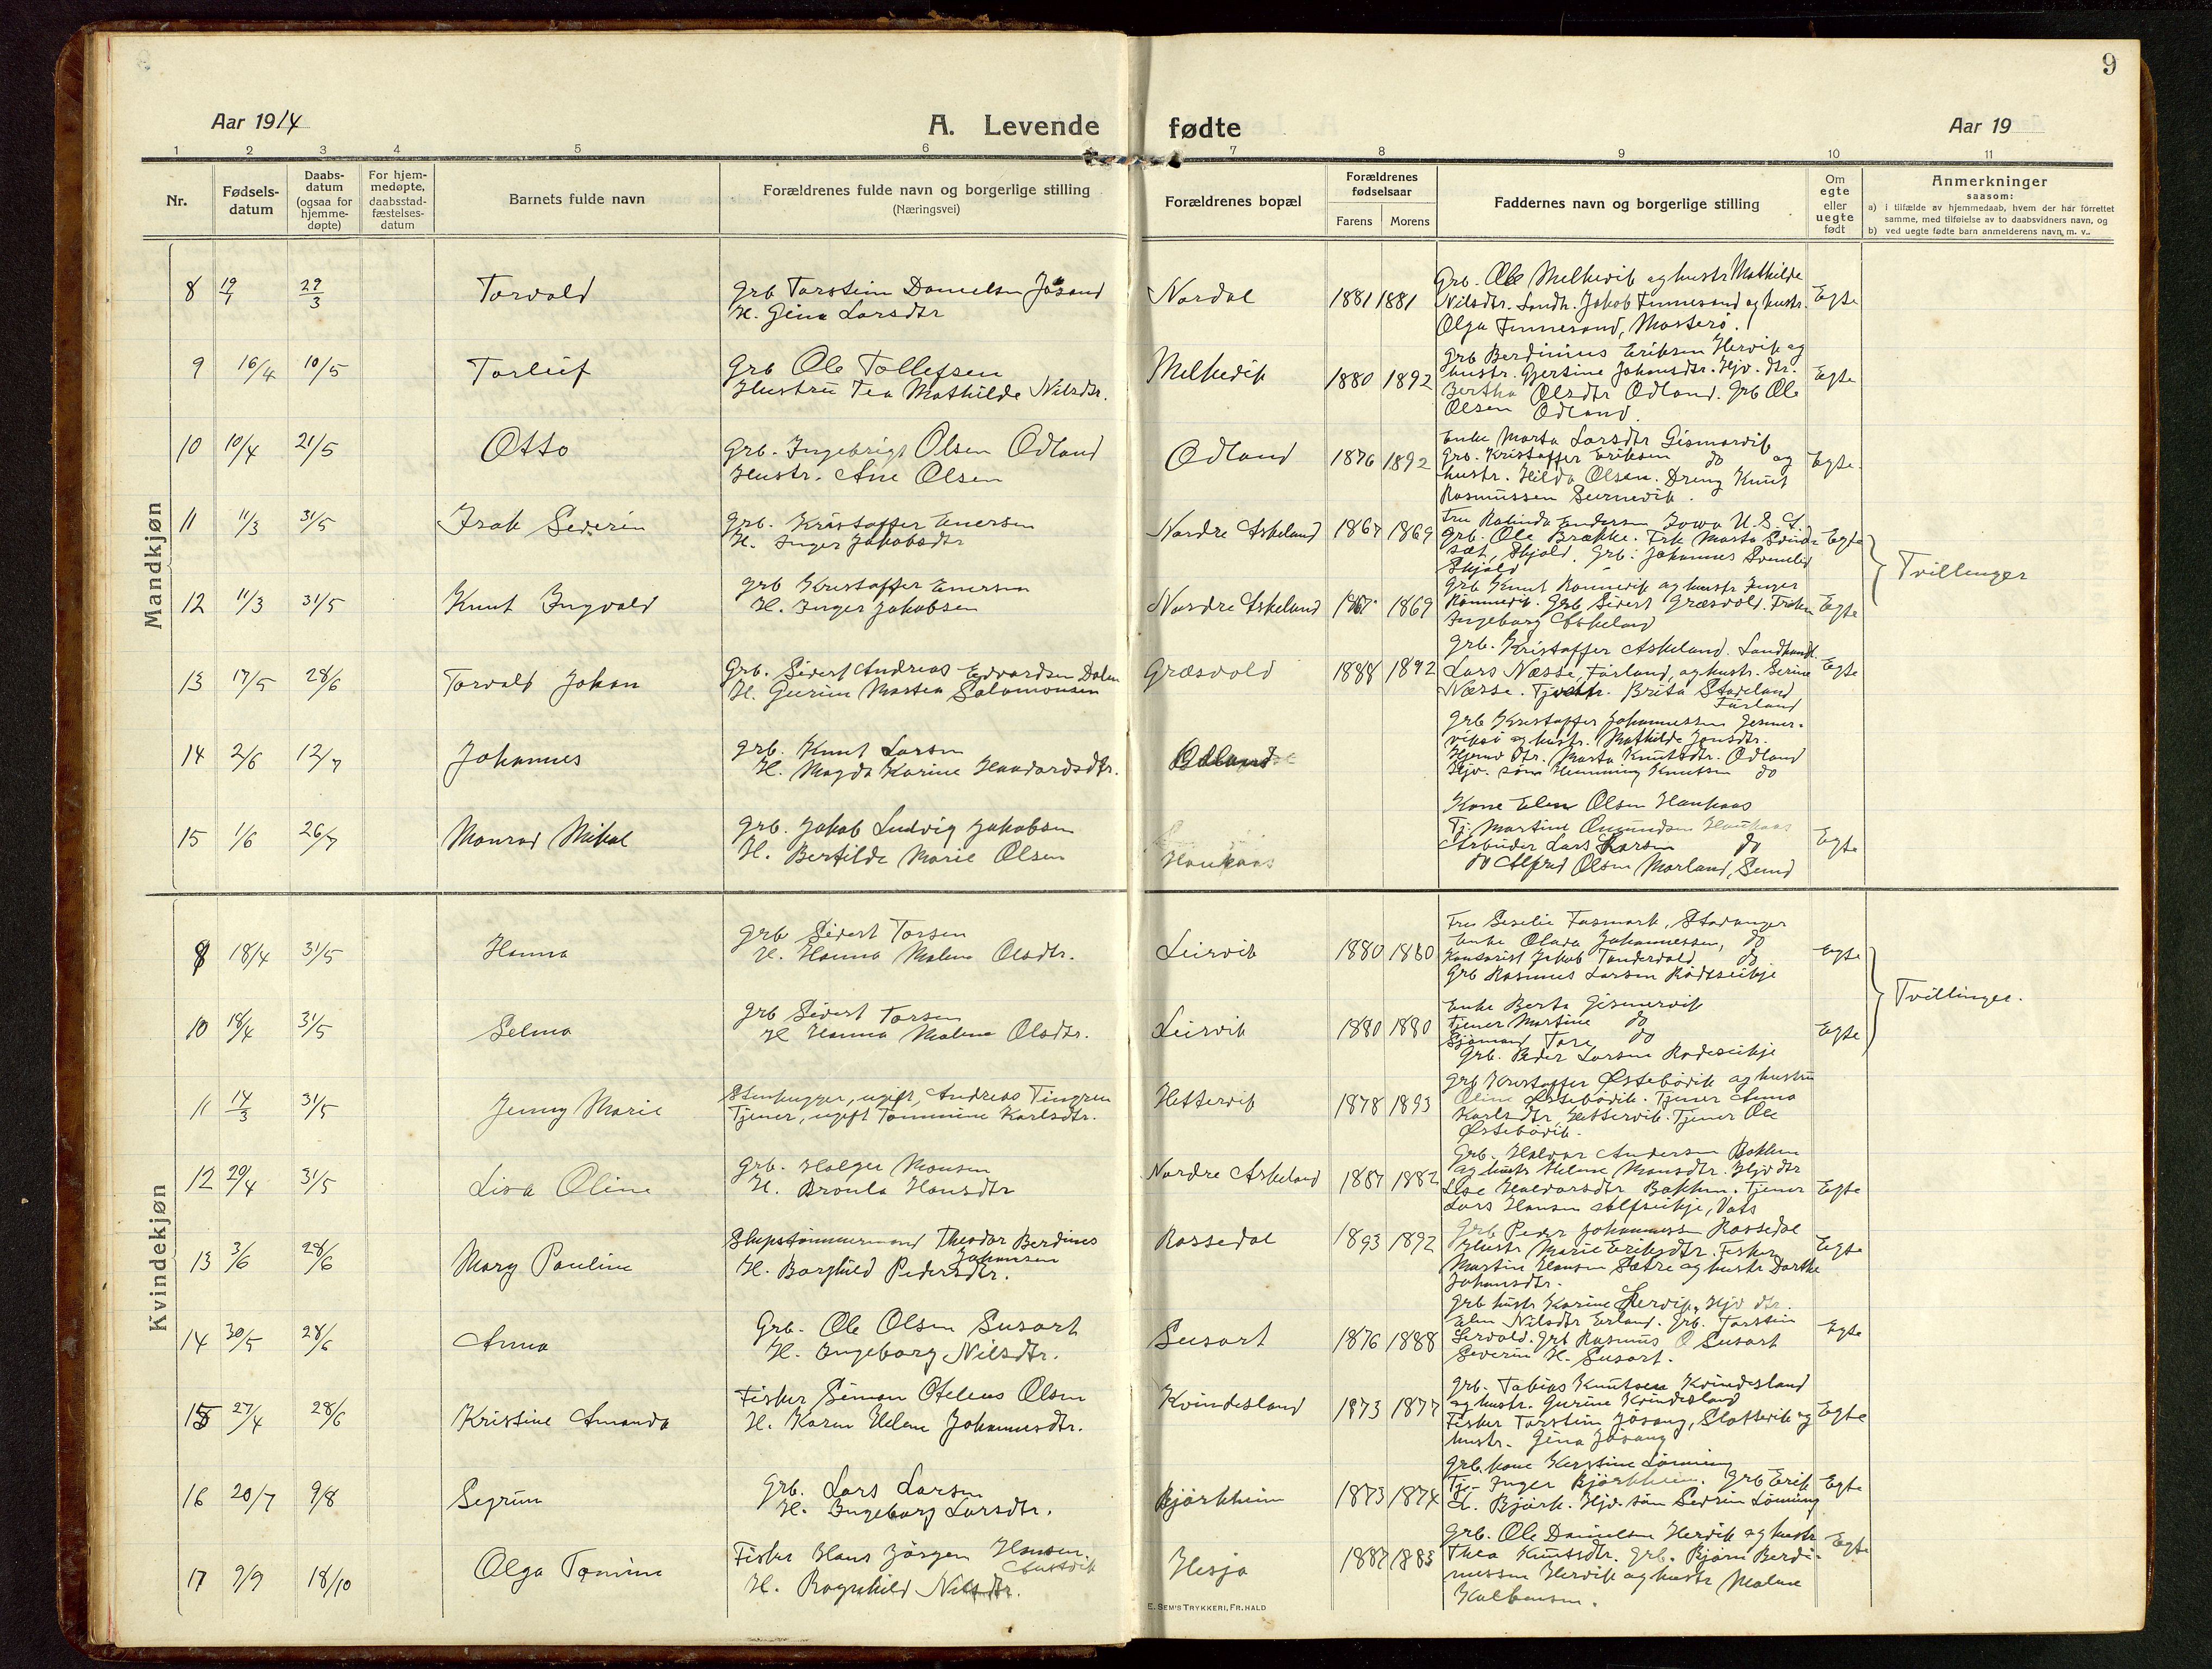 9
Aar 1914
A. Levende fødte
Aar 19
1 2 3 4 5 6 7 8 9 10 11
Nr.
Fødsels-
datum
Daabs-
datum
(ogsaa for
hjemme-
døpte)
For hjem-
medøpte,
daabsstad-
fæstelses-
datum
Barnets fulde navn
Forældrenes fulde navn og borgerlige stilling
(Næringsvei)
Forældrenes bopæl
Forældrenes
fødselsaar
Farens Morens
Faddernes navn og borgerlige stilling
Om
egte
eller
uegte
født
Anmerkninger
saasom:
a) i tilfælde av hjemmedaab, hvem der har forrettet
samme, med tilføielse av to daabsvidners navn, og
b) ved uegte fødte barn anmelderens navn, m. v..
Mandkjøn
8 29/3 Torvald
Grb Torstein Danielsen Jøsand
H. Gina Larsdtr
Nordal 1881 1881
Grb. Ole Melkevik og hustr Mathilde
Nilsdtr. Landh. Jakob Finnesand og hustr.
Olga Finnesand, Mosterö.
Egte
9 16/4 10/5 Torleif
Grb Ole Tollefsen
Hustru Tea Mathilde Nilsdtr.
Melkevik 1880 1892
Grb Berdinius Eriksen Hervik og
hustr. Gjertine Johansdtr. Hjv. dtr.
Bertha Olsdtr Odland. Grb Ole
Olsen Odland.
Egte
10 10/4 21/5 Otto
Grb. Ingebrigt Olsen Odland
Hustr. Ane Olsen
Odland 1876 1892
Enke Marta Larsdtr Gismarvik
Grb. Kristoffer Eriksen do og
hustr. Hilda Olsen. Dreng Knut
Rasmussen
Egte.
11 11/3 31/5 Isak Severin
Grb. Kristoffer Enersen
H. Inger Jakobsdtr
Nordre Askeland 1867 1869
Fru Endersen Iowa U.S.A.
Grb. Ole Brække. Frk Marta
sæt, Skjold. Grb: Johannes
Skjold
Egte
Tvillinger
12 11/3 31/5 Knut Ingvald
Grb Kristoffer Enersen
H. Inger Jakobsen
Nordre Askeland 1867 1869
Grb Knut Rønnevik og hustr Inger
Rönnevik. Grb Sivert Græsvold. Frøken
Ingeborg Askeland
Egte
13 17/5 28/6 Torvald Johan
Grb. Sivert Andreas Edvardsen Dalen
H. Gurine Martea Salomonsen
Græsvold 1888 1892
Grb. Kristoffer Askeland. Landhandl.
Lars Næsse, Førland, og hustr. Serine
Næsse. Brita Stadeland
Førland
Egte
14 2/6 12/7 Johannes
Grb. Knut Larsen
H. Magda Karine Haavardsdtr.
Odland
Grb Kristoffer Johannessen Gesmer-
viksö og hustr. Mathilde Jonsdtr.
Hjemv dtr. Marta Knutsdtr. Odland
Hjv. søn Henning Knutsen do
15 1/6 26/7 Monrad Mikal
Grb. Jakob Ludvig Jakobsen
H. Bertilde Marie Olsen
Haukaas
Kone Elen Olsen Haukaas
Tj. Martine Haukaas
Arbeider Lars Larsen do
do Alfred Olsen Morland, Sund
Egte
Kvindekjøn
18/4 31/5 Hanna
Grb Sivert Torsen
H. Hanna Malene Olsdtr.
Leirvik 1880 1880
Fru Fasmark, Stavanger
Enke Olava Johannessen, do
Jakob do
Grb Rasmus Larsen
Egte
Tvillinger.
10 18/4 31/5 Selma
Grb Sivert Torsen
H Hanna Malene Olsdtr.
Leirvik 1880 1880
Enke Berta Gismervik
Tjener Martine do
Sjömand Tore do
Grb. Peder Larsen
Egte
11 14/3 31/5 Jenny Marie
Stenhugger, ugift, Andreas Tingren
Tjener, ugift Tommine Karlsdtr.
Hettervik 1878 1893
Grb Kristoffer Østebövik og hustru
Oline Østebövik. Tjener Anna
Karlsdtr, Hettervik. Tjener Ole
Østebövik.
12 29/4 31/5 Lisa Oline
Grb. Holger Monsen
H. Hansdtr
Nordre Askeland 1887 1882
Grb. Halvor Andersen Bakken
og hustr Helene Monsdtr. Hjv dtr
Lise Halvorsdtr Bakken. Tjener
Lars Hansen Vats
Egte
13 3/6 28/6 Mary Pauline
Skipstømmermand Theodor Berdines
Johansen
H. Borghild Pedersdtr.
Rossedal 1893 1892
Grb Peder Johannessen Rossedal
Hustr Marie Eriksdtr. Fisker
Martin Hansen Sætre og hustr Dorthe
Johansdtr.
Egte
14 30/5 28/6 Anna
Grb. Ole Olsen Susort
H. Ingeborg Nilsdtr.
Susort 1876 1888
Grb hustr Karine Hervik, Hjv dtr.
Elen Nilsdtr Erland. Grb. Torstein
Grb Rasmus O Susort
Severin H. Susort.
Egte
15 27/4 28/6 Kristine Amanda
Fisker Simon Olsen
H. Karen Helene Johannesdtr.
Kvindesland 1873 1877
Grb. Tobias Knutsen Kvindesland
og hustr. Gurine Kvindesland
Fisker Torstein Jösang, Slottevik og
hustr. Gina Jösang
Egte
16 20/7 9/8 Segrun
Grb. Lars Larsen
H. Ingeborg Larsdtr.
Bjørkheim 1873 1874
Grb. kone Kerstine Lönning
Tj. Inger Bjørkheim. Grb Erik
L. Bjørk. Hjv. søn Severin Lönning
Egte
17 9/9 18/10 Olga Tomine
Fisker Hans Jörgen Hansen.
H. Ragnhild Nilsdtr.
Hesja 1887 1883
Grb. Ole Danielsen Hervik og hustr
Thea Knutsdtr. Grb. Bjørn Berdi-
nessen Hervik og hustr Malene
Egte
E. SEM'S TRYKKERI, FR.HALD